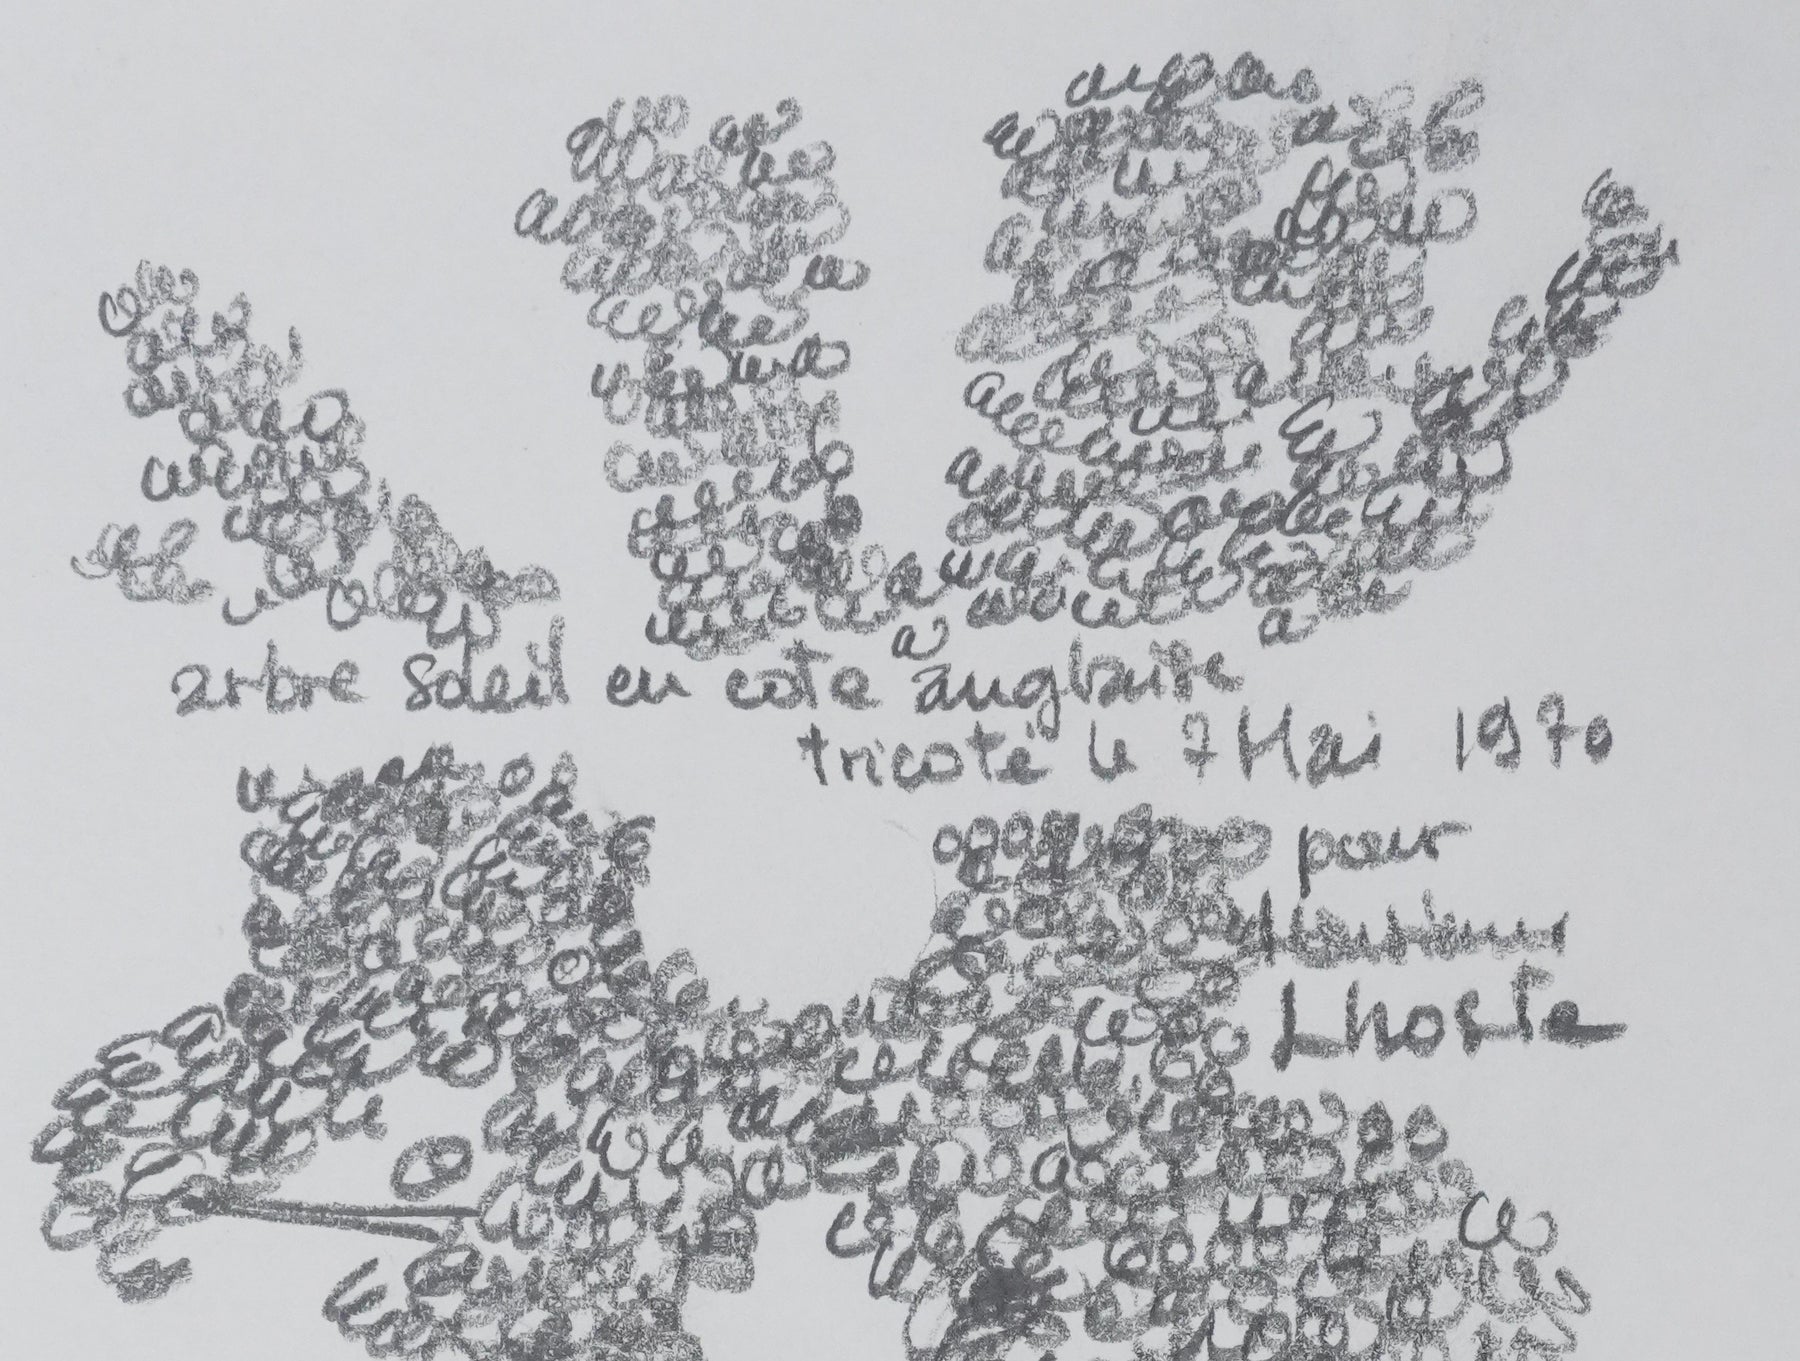 arbre soleil en cote anglaise
tricoté le 7 Mai 1970
pour
Monsieur
Lhoste